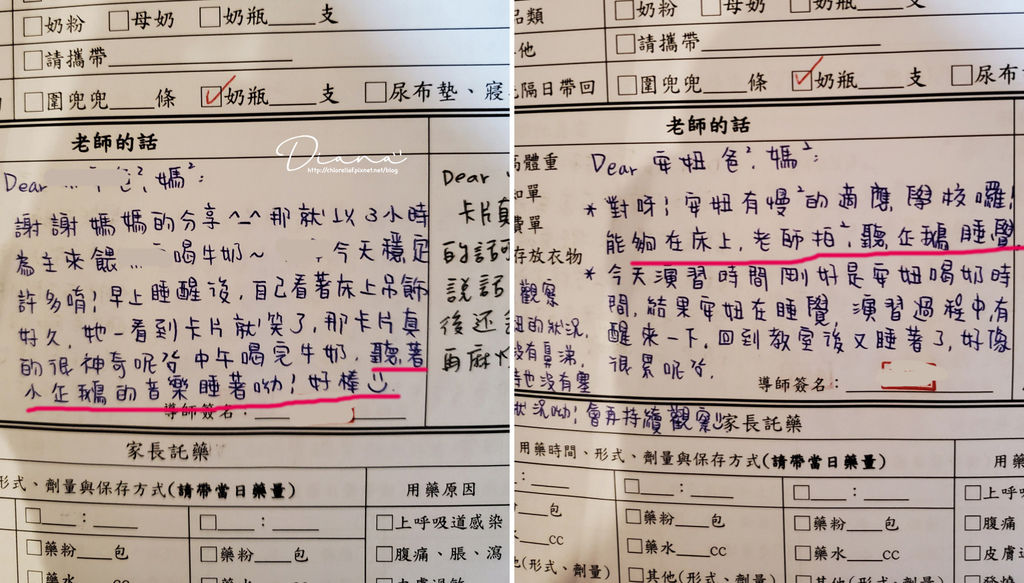 □奶粉 □母奶 □奶瓶____支
□請攜帶____
□圍兜兜____條 ☑奶瓶____支 □尿布墊、寢
老師的話
Diana
http://chlorelief.pixnet.net/blog
Dear 爸²、媽²:
謝謝媽媽的分享^_^那就以3小時
為主來餵 喝牛奶~ 今天穩定
許多唷!早上睡醒後,自己看著床上吊飾
好久,她一看到卡片就笑了,那卡片真
的很神奇呢 中午喝完牛奶,聽著
小企鵝的音樂睡著呦!好棒
導師簽名:
Dear
卡片真
的話可
說話
後還
再麻
家長託藥
形式、劑量與保存方式(請帶當日藥量) 用藥原因
□__:__ □__:__ □上呼吸道感染
□藥粉__包 □藥粉__包 □腹痛、脹、瀉
□藥水 □藥水
品類 □奶粉 □母奶 □奶瓶____支
其他 □請攜帶____
隔日帶回 □圍兜兜____條 ☑奶瓶____支 □尿布
老師的話
Dear 安妞爸²、媽²:
*對呀!安妞有慢²的適應學校囉!
能夠在床上,老師拍²、聽企鵝睡覺
*今天演習時間剛好是安妞喝奶時
間,結果安妞在睡覺,演習過程中,有
醒來一下,回到教室後又睡著了,好像
很累呢
導師簽名:
高體重
知單
費單
存放衣物
觀察
妞的狀況,
沒有鼻涕,
時也沒有塞
狀況呦!會再持續觀察!!
家長託藥
用藥時間、形式、劑量與保存方式(請帶當日藥量)
__:__ □__:__ □__:__ □上呼
__包 □藥粉__包 □藥粉__包 □腹痛
__cc □藥水__cc □藥水__cc □皮膚
他(形式、劑量) □其他(形式、劑量) □其他(形式、劑量) □發燒